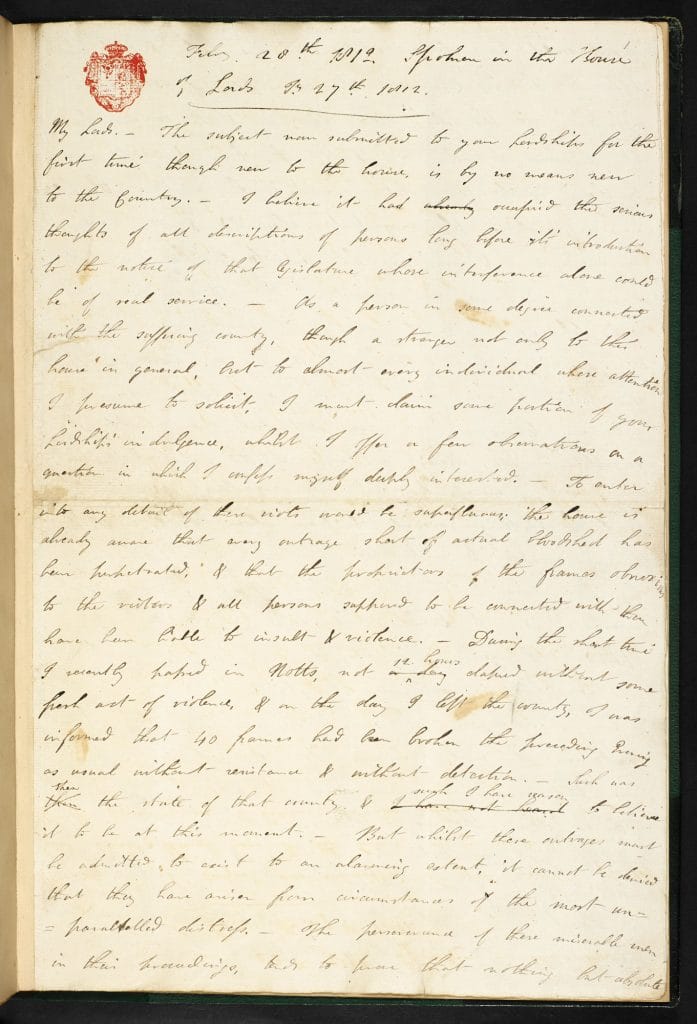 Feby. 28th 1812. Spoken in the House
of Lords F. 27th. 1812.
My Lords. — The subject now submitted to your Lordships for the
first time though new to the house, is by no means new
to the Country. — I believe it had already occupied the serious
thoughts of all descriptions of persons long before its introduction
to the notice of that legislature whose interference alone could
be of real service. — As a person in some degree connected
with the suffering county, though a stranger not only to this
house in general, but to almost every individual whose attention
I presume to solicit, I must claim some portion of your
Lordships indulgence, whilst I offer a few observations on a
question in which I confess myself deeply interested. — To enter
into any detail of these riots would be superfluous, the house is
already aware that every outrage short of actual bloodshed has
been perpetrated, & that the proprietors of the frames obnoxious
to the rioters & all persons supposed to be connected with them
have been liable to insult & violence. — During the short time
I recently passed in Notts, not 12 hours elapsed without some
fresh act of violence, & on the day I left the county, I was
informed that 40 frames had been broken the preceding Evening
as usual without resistance & without detection. — Such was
then the state of that county, & such I have reason to believe
it to be at this moment. — But whilst these outrages must
be admitted to exist to an alarming extent, it cannot be denied
that they have arisen from circumstances of the most un=
=paralelled distress. — The perseverance of these miserable men
in their proceedings, tends to prove that nothing but absolute